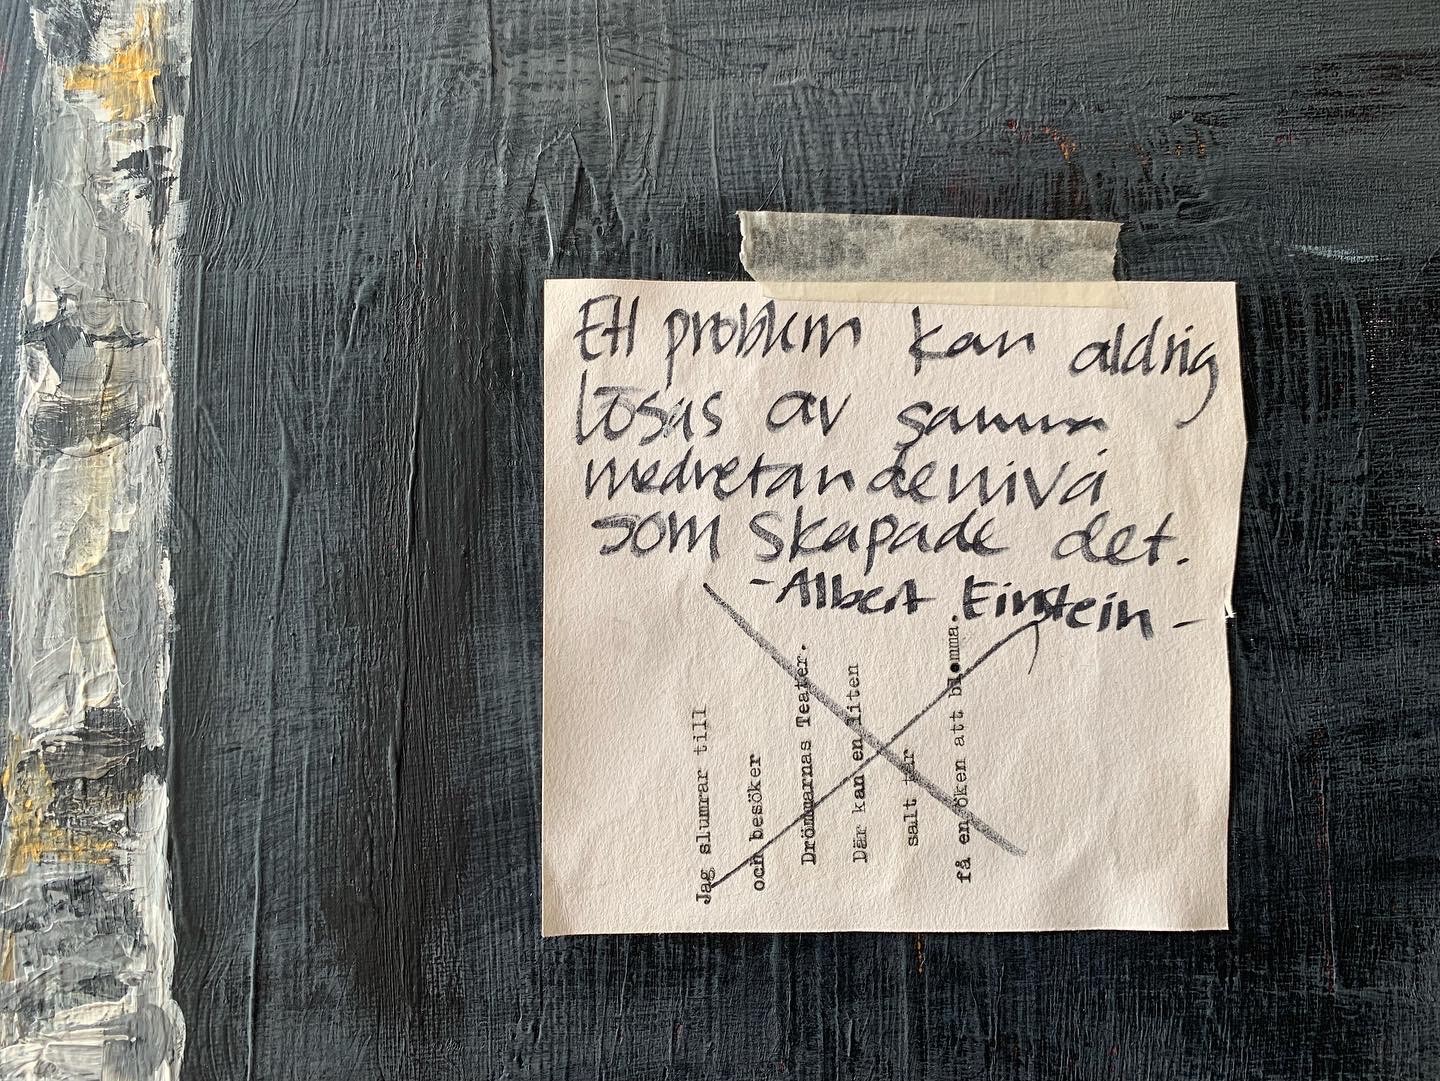 Ett problem kan aldrig
lösas av samma
medvetandenivå
som skapade det.
- Albert Einstein -
Jag slumrar till
och besöker
Drömmarnas Teater.
Där kan en liten
salt tår
få en öken att blomma.